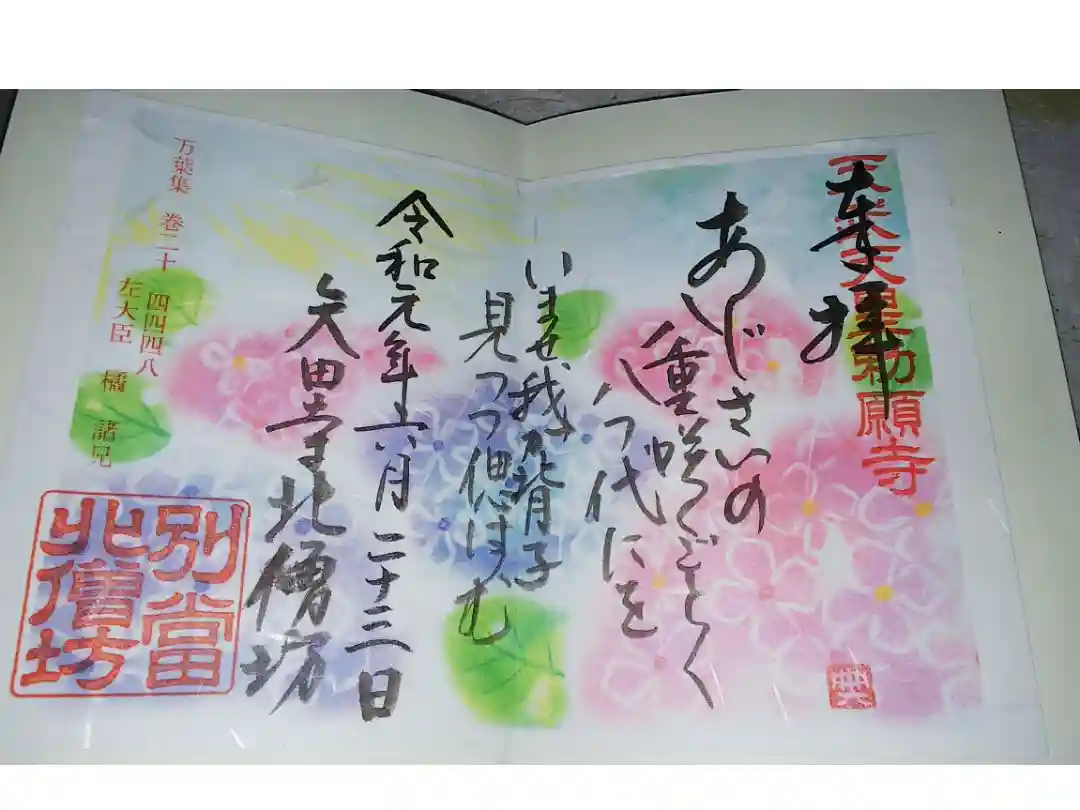 奉拝
天武天皇勅願寺
あじさいの
八重咲くごとく
八つ代にを
いませ我が背子
見つつ偲はむ
令和元年六月二十三日
矢田寺北僧坊
万葉集 巻二十 四四四八
左大臣 橘 諸兄
別當
北僧坊